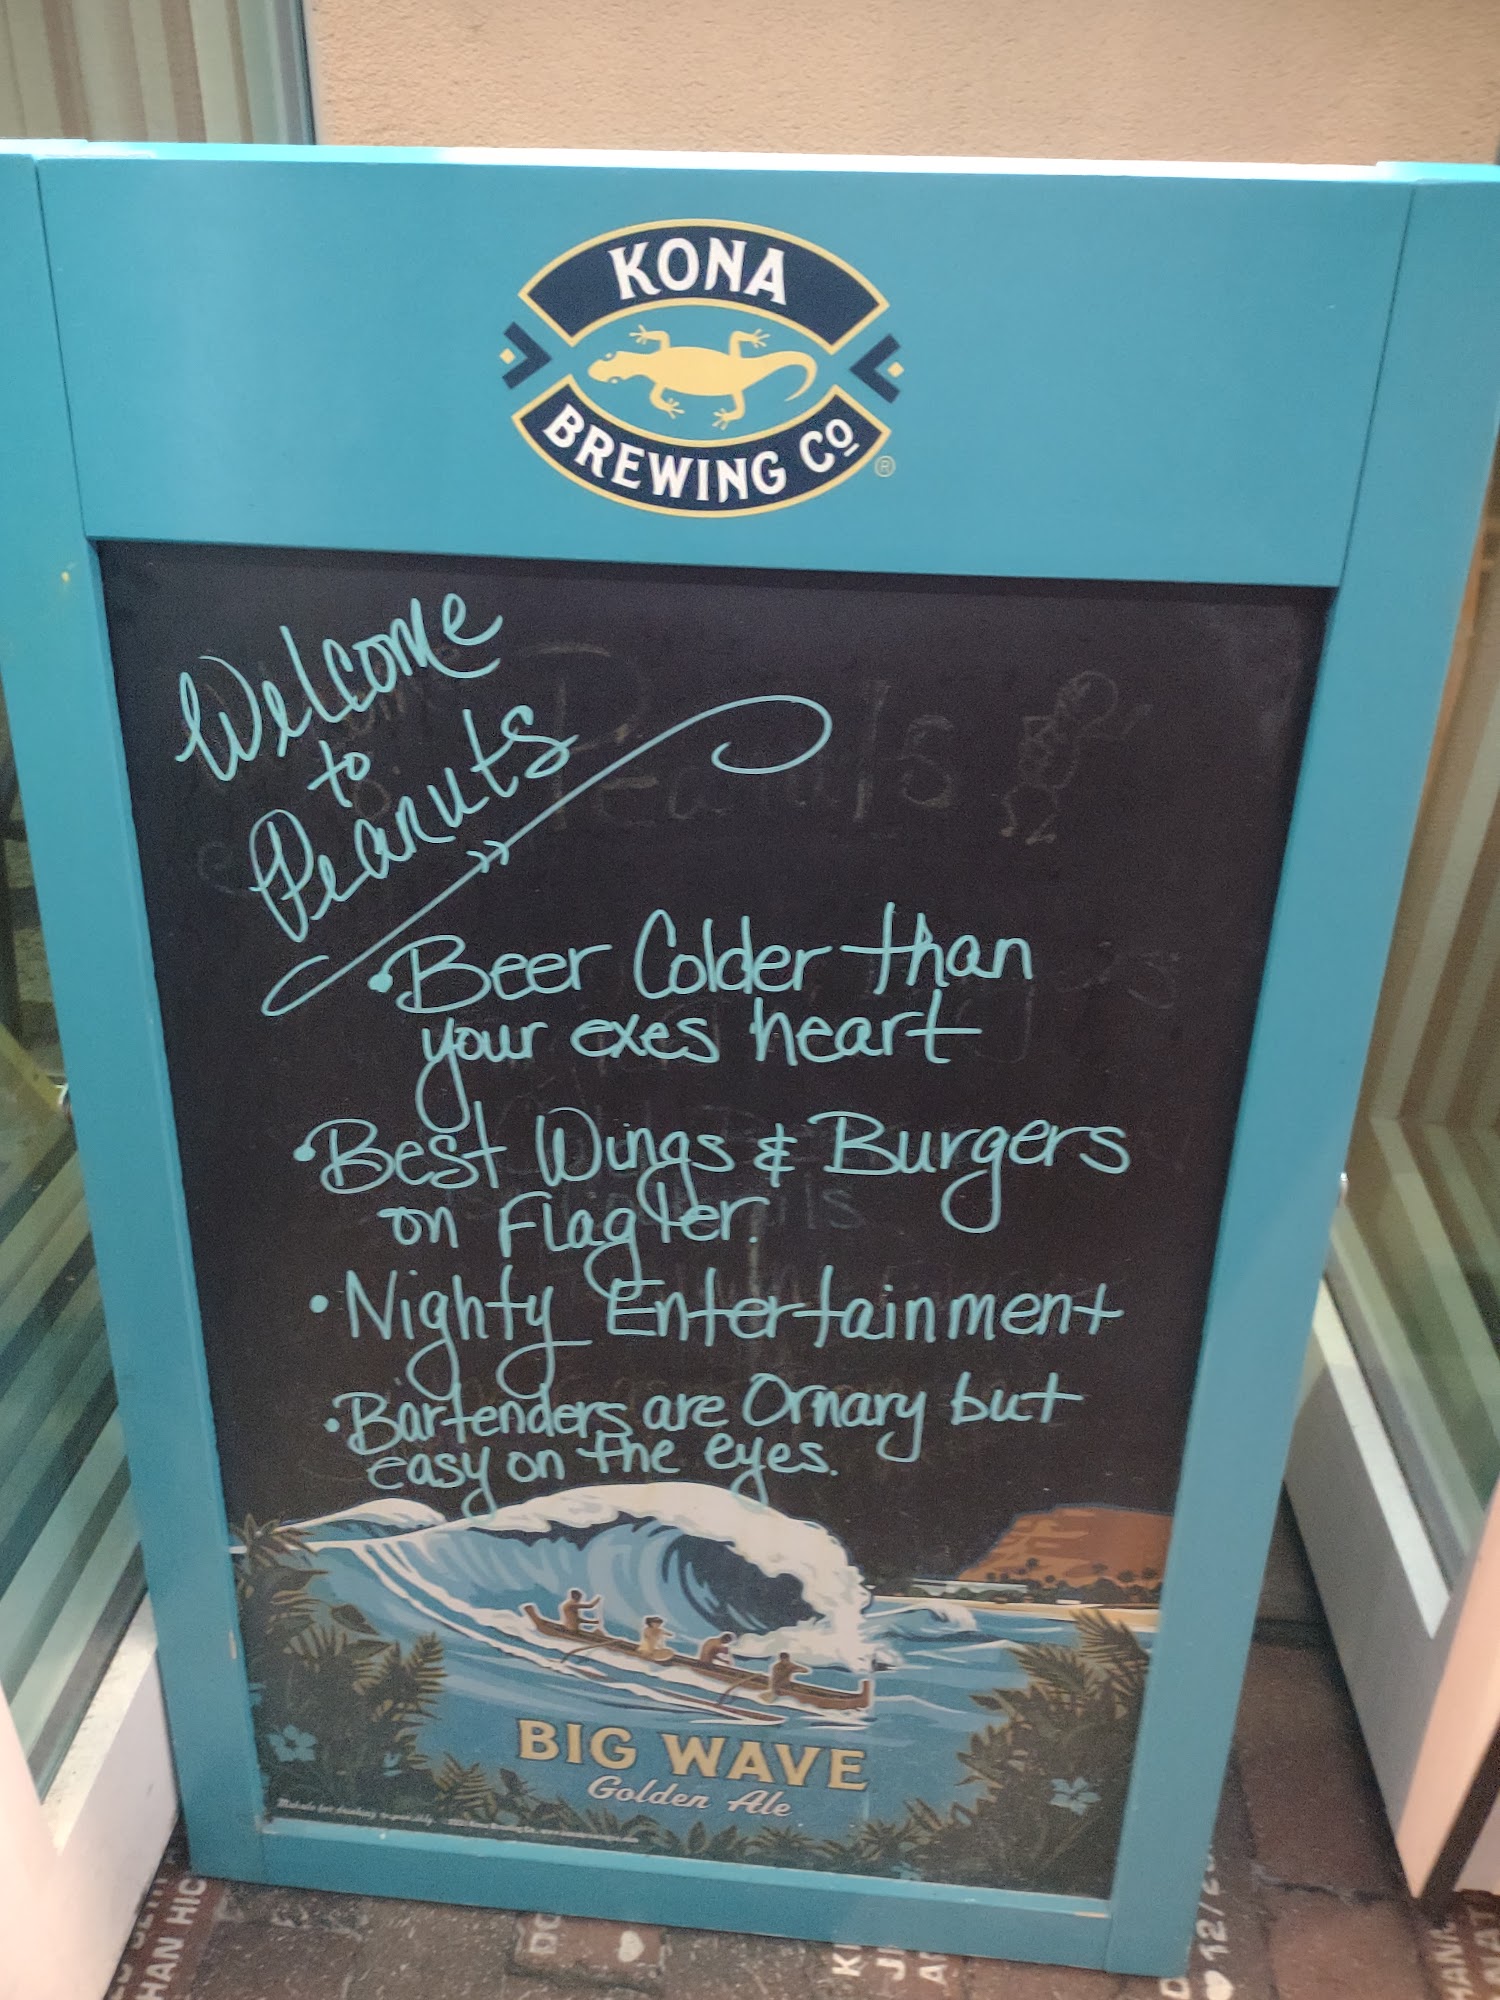 KONA
BREWING Co
®
Welcome
to
Peanuts
• Beer Colder than
your exes heart
• Best Wings & Burgers
on Flagler.
• Nighty Entertainment
• Bartenders are Ornary but
easy on the eyes.
BIG WAVE
Golden Ale
HAN HIC
12/2